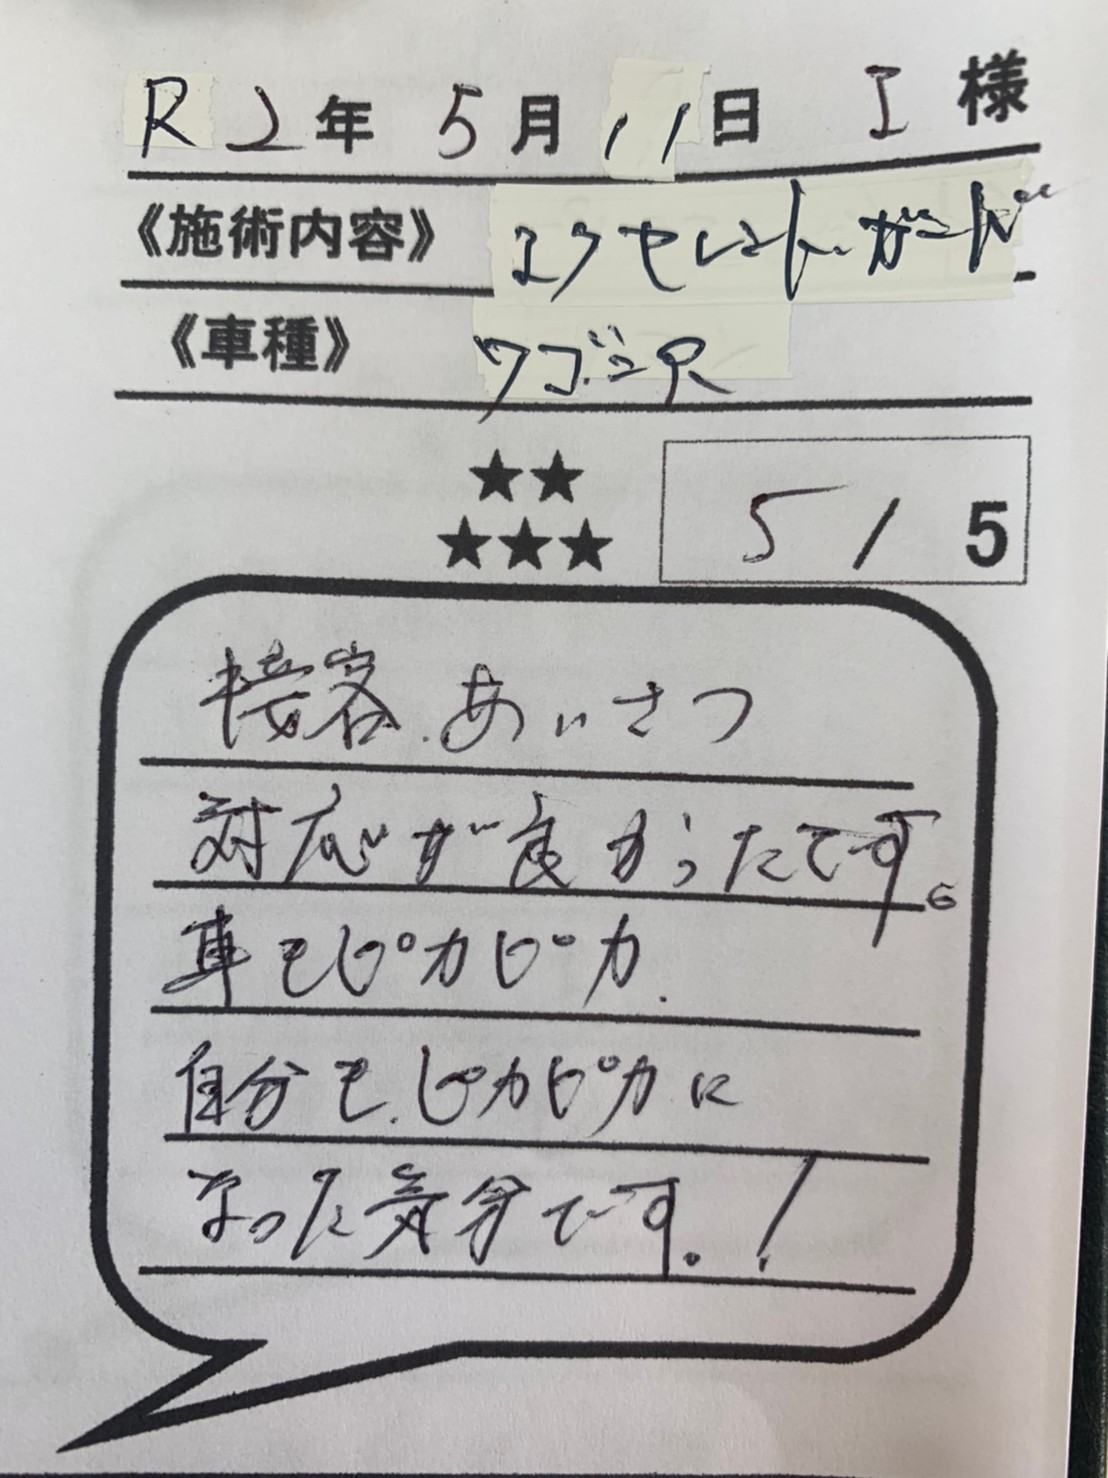 R2年 5月 11日 I 様
《施術内容》 エクセレントガード
《車種》 ワゴンR
★★
★★★ 5/5
接客.あいさつ
対応が良かったです。
車もピカピカ.
自分も.ピカピカに
なった気分です.!